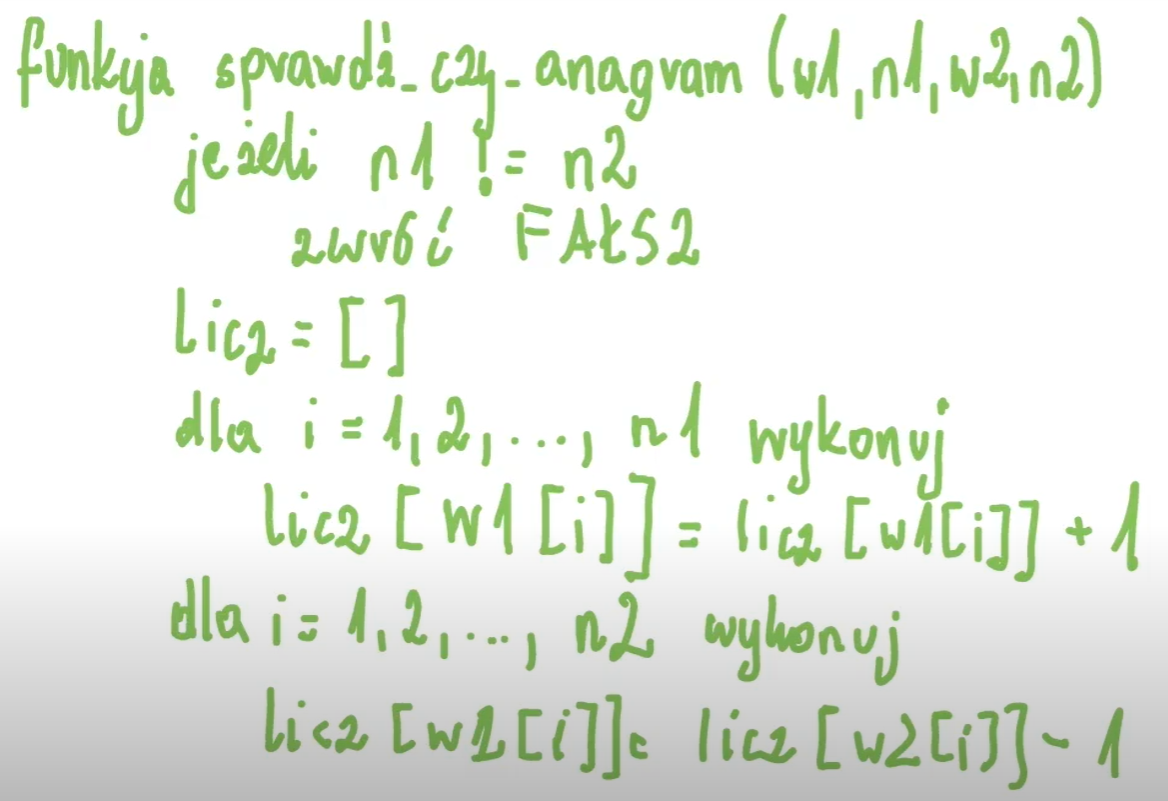 funkcja sprawdź_czy_anagram (w1, n1, w2, n2)
jeżeli n1 != n2
zwróć FAŁSZ
licz = [ ]
dla i = 1, 2, ..., n1 wykonuj
licz [w1[i]] = licz [w1[i]] + 1
dla i = 1, 2, ..., n2 wykonuj
licz [w2[i]] = licz [w2[i]] - 1